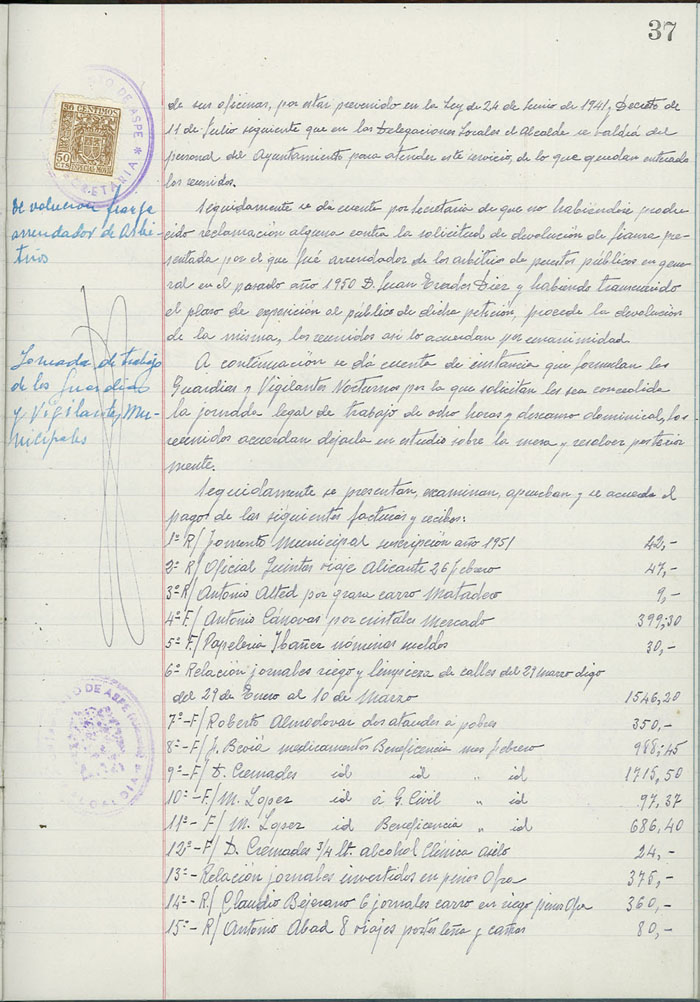 37
de sus oficinas, por estar prevenido en la Ley de 24 de Junio de 1941 y Decreto de
11 de Julio siguiente que en las Delegaciones Locales el Alcalde se valdrá del
personal del Ayuntamiento para atender este servicio, de lo que quedan enterados
los reunidos.
Devolución fianza
arrendador de Arbi-
trios
Seguidamente se da cuenta por Secretaria de que no habiendose produ-
cido reclamación alguna contra la solicitud de devolución de fianza pre-
sentada por el que fué arrendador de los arbitrios de puestos públicos en gene-
ral en el pasado año 1950 D. Juan Erades Diez y habiendo transcurrido
el plazo de exposición al público de dicha petición, procede la devolución
de la misma, los reunidos asi lo acuerdan por unanimidad.
Jornada de trabajo
de los Guardias
y Vigilantes Mu-
nicipales
A continuación se dá cuenta de instancia que formulan los
Guardias y Vigilantes Nocturnos por la que solicitan les sea concedida
la jornada legal de trabajo de ocho horas y descanso dominical, los
reunidos acuerdan dejarla en estudio sobre la mesa y resolver posterior
mente.
Seguidamente se presentan, examinan, aprueban y se acuerda el
pago de las siguientes facturas y recibos:
1º R/ Fomento Municipal suscripción año 1951 42,-
2º R/ Oficial Quintas viaje Alicante 26 febrero 47,-
3º R/ Antonio Alted por grasa carro Matadero 9,-
4º F/ Antonio Cánovas por cristales Mercado 399,30
5º F/ Papeleria Ibañez nóminas sueldos 30,-
6º Relación jornales riego y limpieza de calles del 29 marzo digo
del 29 de Enero al 10 de Marzo 1546,20
7º-F/ Roberto Almodovar dos ataudes á pobres 350,-
8º-F/ J. Beviá medicamentos Beneficencia mes febrero 988,45
9º-F/ D. Cremades id id " id 1715,50
10º-F/ M. Lopez id á G. Civil " id 97,37
11º-F/ M. Lopez id Beneficencia " id 686,40
12º-F/ D. Cremades 3/4 lt. alcohol Clinica Asilo 24,-
13º-Relación jornales invertidos en pinos Ofra 375,-
14º-R/ Claudio Bejerano 6 jornales carro en riego pinos Ofra 360,-
15º-R/ Antonio Abad 8 viajes portes leña y cañas 80,-
50 CENTIMOS
50
CTS
ESPECIAL MOVIL
DE ASPE
AYUNTAMIENTO DE ASPE